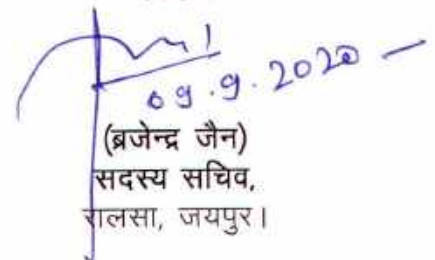 09.9.2020
(ब्रजेन्द्र जैन)
सदस्य सचिव,
रालसा, जयपुर।